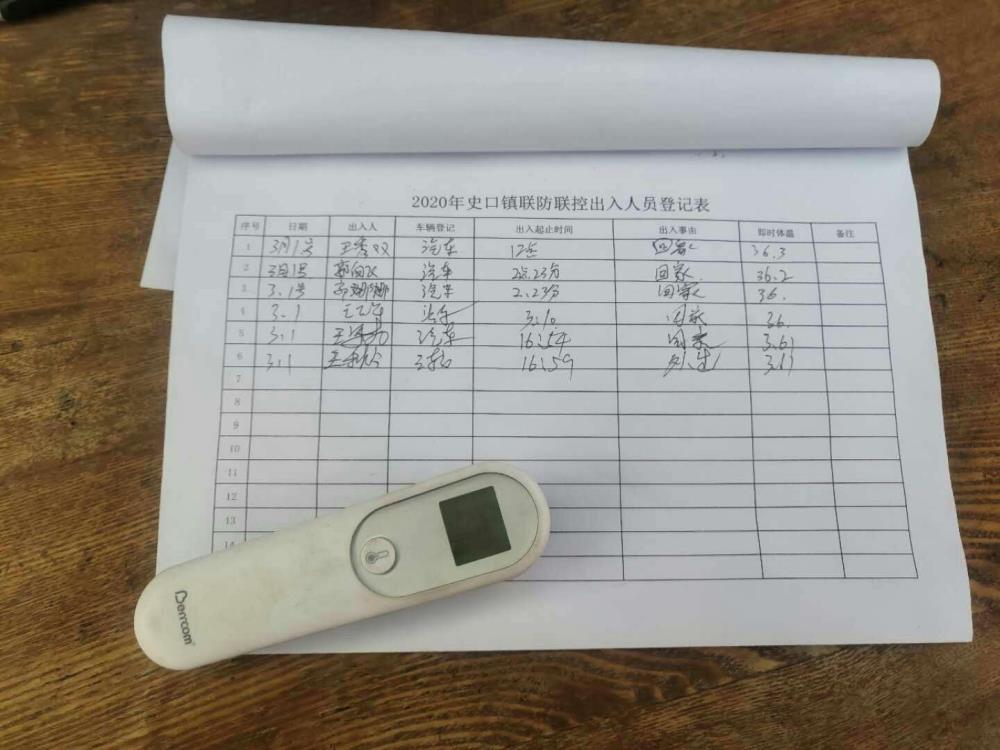 2020年史口镇联防联控出入人员登记表
序号 日期 出入人 车辆登记 出入起止时间 出入事由 即时体温 备注
1 3月1号 王秀双 汽车 12点 回家 36.3
2 3月1号 汽车 2点23分 回家 36.2
3 3.1号 汽车 2.23分 回家 36.
4 3.1 3:10 回家 36.
5 3.1 汽车 16:54 回来 3.61
6 3.1 16:59 3.61
7
8
9
10
11
12
13
14
Berrcom